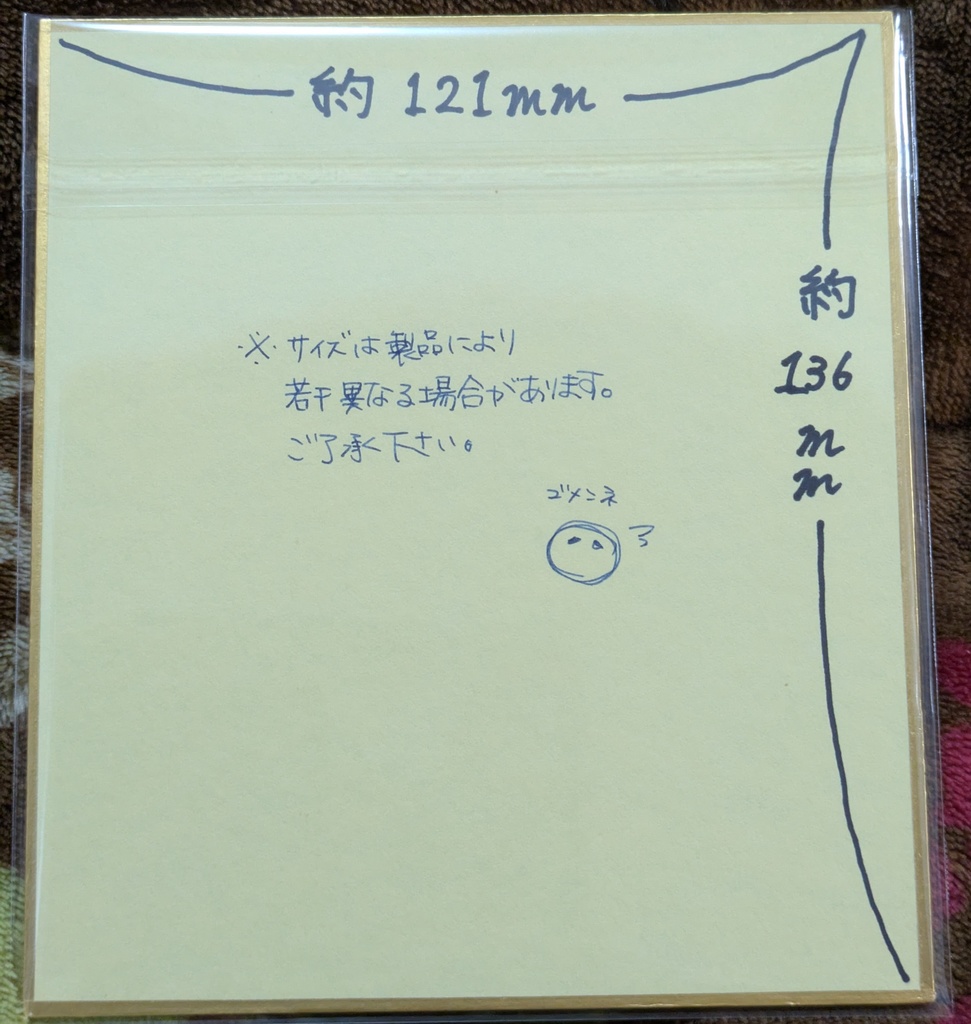 約 121mm
約
136
m
m
※ サイズは製品により
若干異なる場合があります。
ご了承下さい。
ゴメンネ